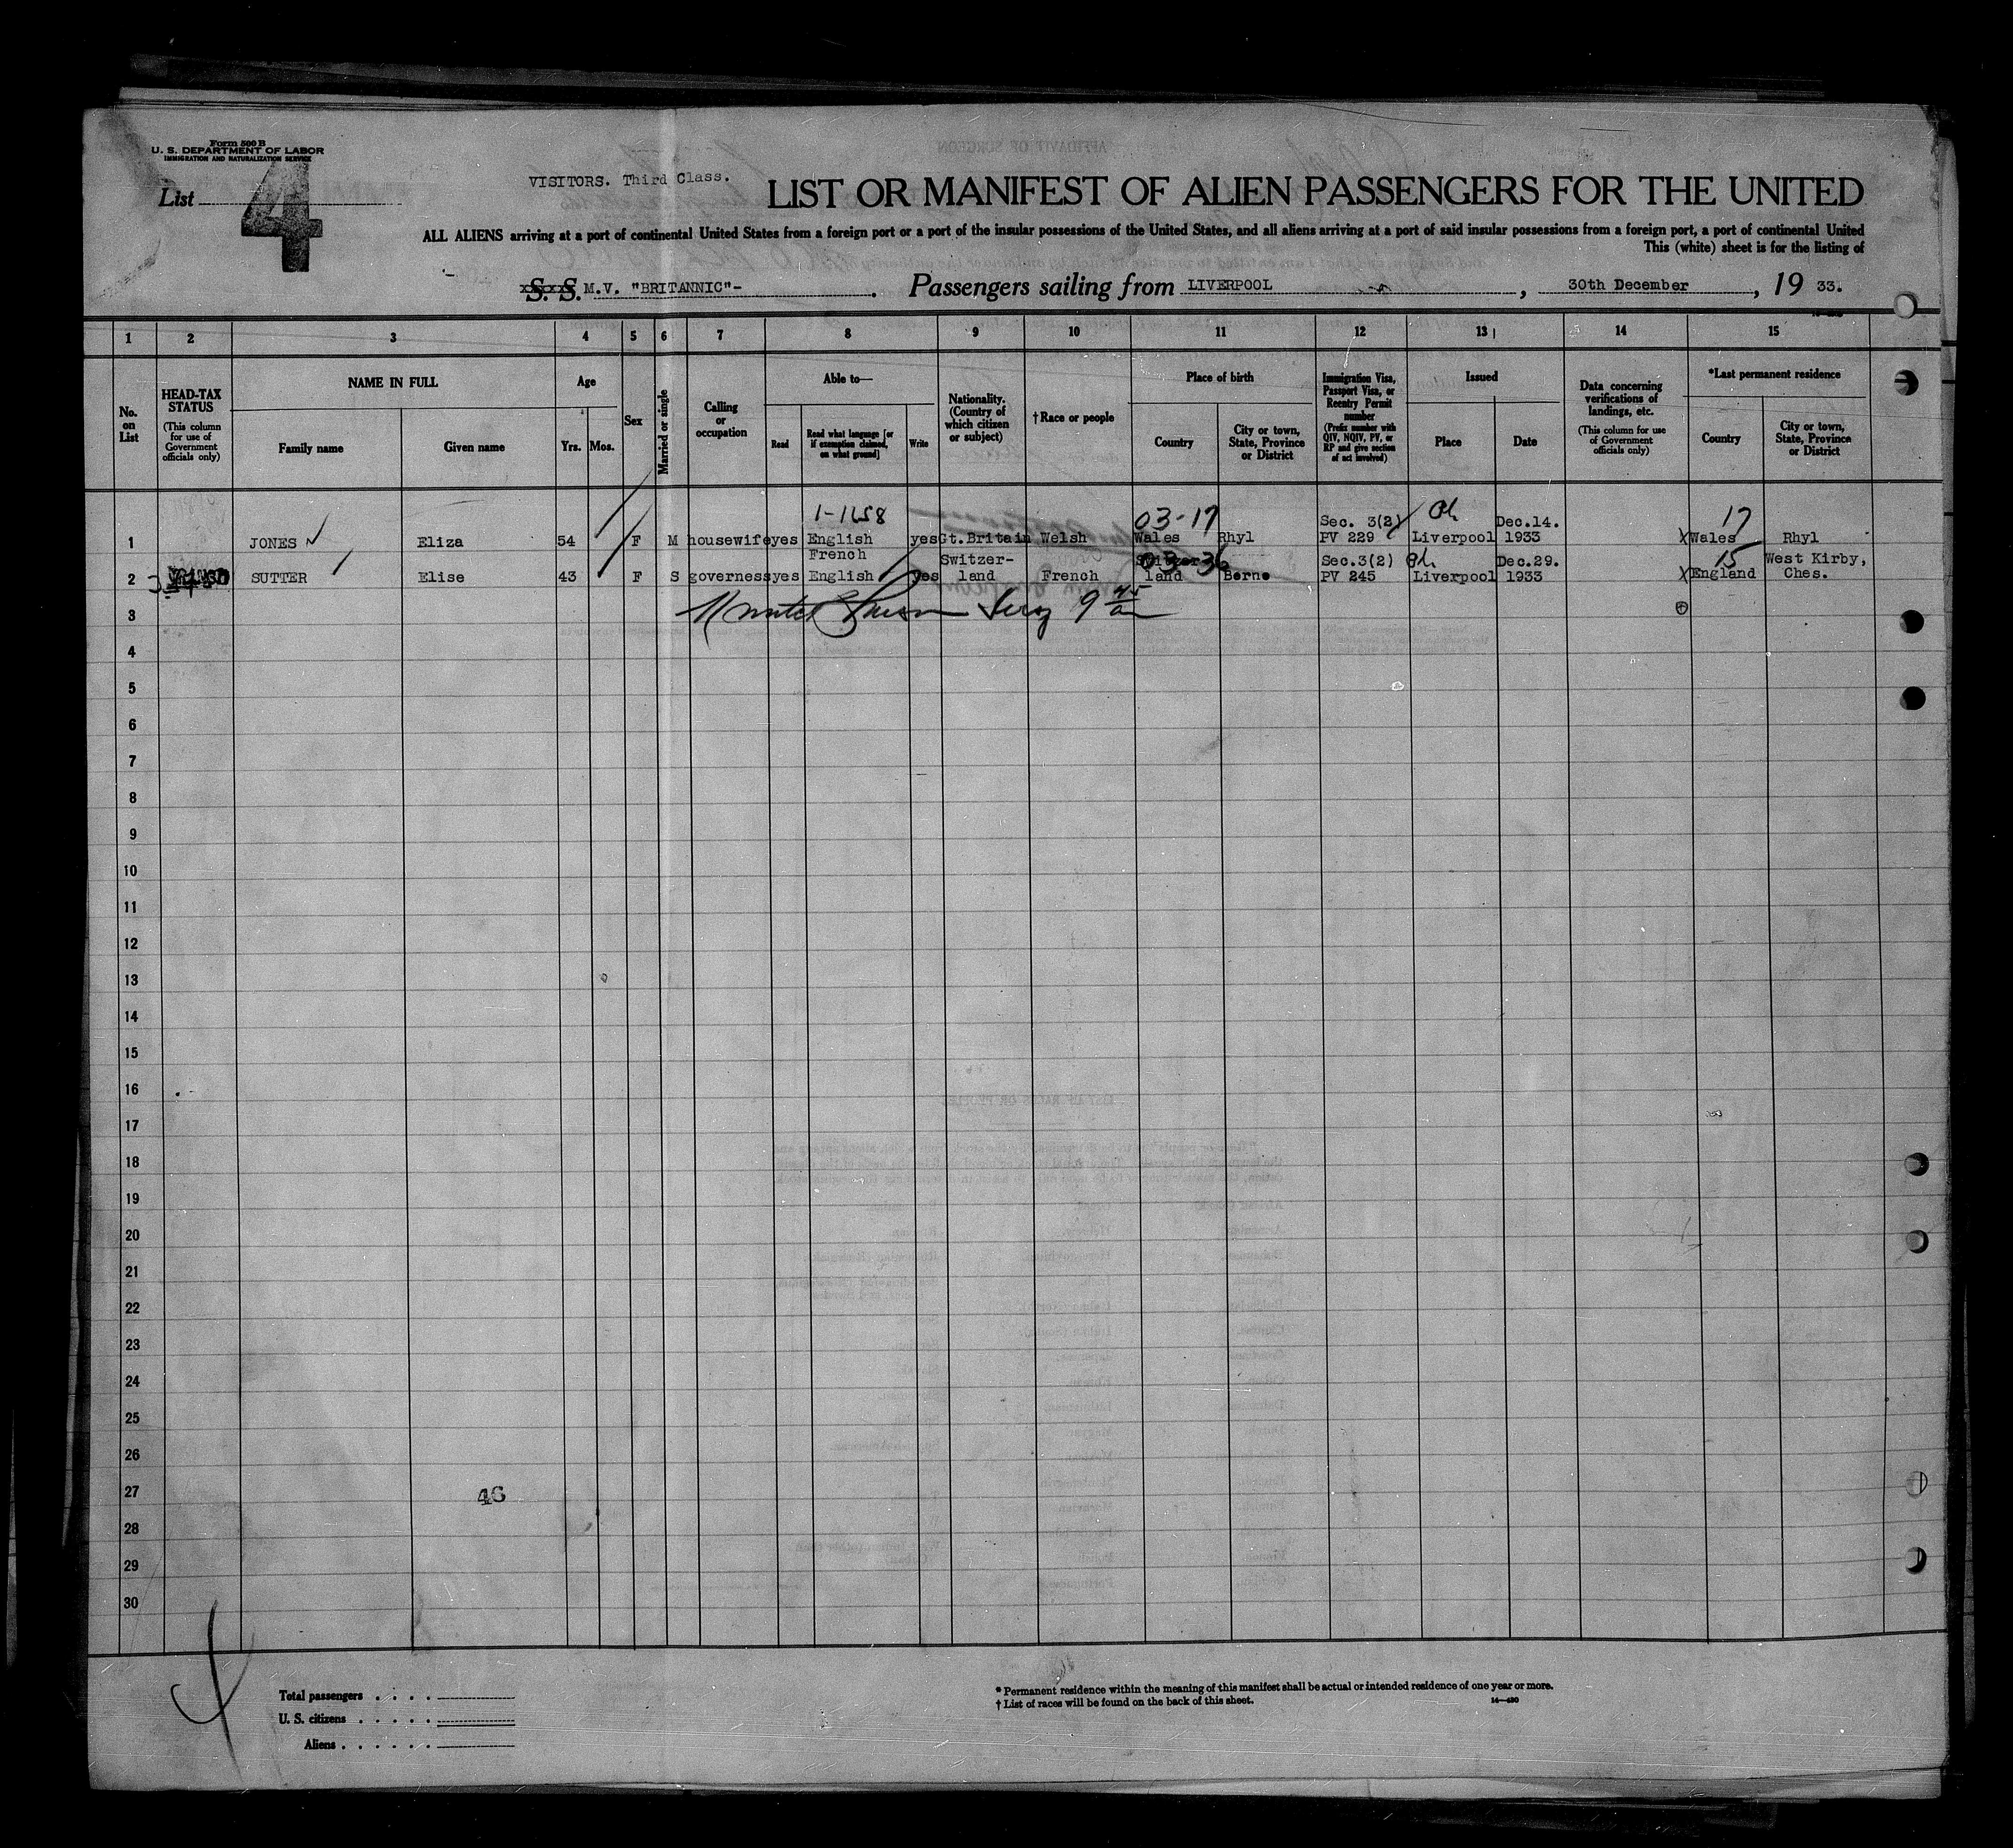 Form 500 B
U. S. DEPARTMENT OF LABOR
IMMIGRATION AND NATURALIZATION SERVICE
List 4
VISITORS. Third Class.
LIST OR MANIFEST OF ALIEN PASSENGERS FOR THE UNITED
ALL ALIENS arriving at a port of continental United States from a foreign port or a port of the insular possessions of the United States, and all aliens arriving at a port of said insular possessions from a foreign port, a port of continental United
This (white) sheet is for the listing of
S. S. M.V. "BRITANNIC"- . Passengers sailing from LIVERPOOL , 30th December , 19 33.
1 2 3 4 5 6 7 8 9 10 11 12 13 14 15
No. on List
HEAD-TAX STATUS
(This column for use of Government officials only)
NAME IN FULL
Family name
Given name
Age
Yrs.
Mos.
Sex
Married or single
Calling or occupation
Able to—
Read
Read what language [or if exemption claimed, on what ground]
Write
Nationality. (Country of which citizen or subject)
† Race or people
Place of birth
Country
City or town, State, Province or District
Immigration Visa, Passport Visa, or Reentry Permit number
(Prefix number with QIV, NQIV, PV, or RP and give section of act involved)
Issued
Place
Date
Data concerning verifications of landings, etc.
(This column for use of Government officials only)
*Last permanent residence
Country
City or town, State, Province or District
1-1658 03-17 Sec. 3(2) Dec.14. 17
1 JONES Eliza 54 F M housewife yes English yes Gt.Britain Welsh Wales Rhyl PV 229 Liverpool 1933 X Wales Rhyl
French Switzer- Switzer- 03-36 Sec.3(2) Dec.29. 15 West Kirby,
2 SUTTER Elise 43 F S governess yes English yes land French land Berne PV 245 Liverpool 1933 X England Ches.
3
4
5
6
7
8
9
10
11
12
13
14
15
16
17
18
19
20
21
22
23
24
25
26
27 46
28
29
30
Total passengers . . . .
U. S. citizens . . . . .
Aliens . . . . . .
* Permanent residence within the meaning of this manifest shall be actual or intended residence of one year or more.
† List of races will be found on the back of this sheet.
14—430